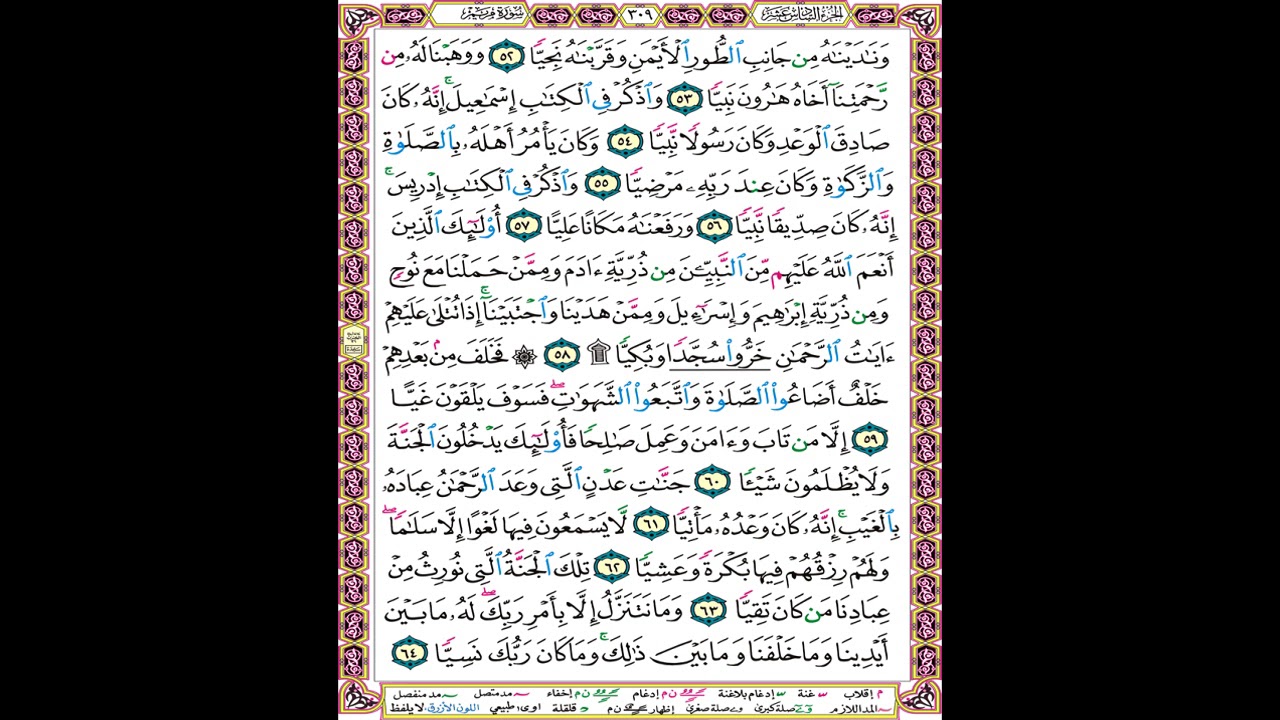 الجزء السادس عشر ٣٠٩ سورة مريم
وَنَٰدَيْنَٰهُ مِن جَانِبِ ٱلطُّورِ ٱلْأَيْمَنِ وَقَرَّبْنَٰهُ نَجِيًّا ٥٢ وَوَهَبْنَا لَهُۥ مِن
رَّحْمَتِنَآ أَخَاهُ هَٰرُونَ نَبِيًّا ٥٣ وَٱذْكُرْ فِى ٱلْكِتَٰبِ إِسْمَٰعِيلَ ۚ إِنَّهُۥ كَانَ
صَادِقَ ٱلْوَعْدِ وَكَانَ رَسُولًا نَّبِيًّا ٥٤ وَكَانَ يَأْمُرُ أَهْلَهُۥ بِٱلصَّلَوٰةِ
وَٱلزَّكَوٰةِ وَكَانَ عِندَ رَبِّهِۦ مَرْضِيًّا ٥٥ وَٱذْكُرْ فِى ٱلْكِتَٰبِ إِدْرِيسَ ۚ
إِنَّهُۥ كَانَ صِدِّيقًا نَّبِيًّا ٥٦ وَرَفَعْنَٰهُ مَكَانًا عَلِيًّا ٥٧ أُو۟لَٰٓئِكَ ٱلَّذِينَ
أَنْعَمَ ٱللَّهُ عَلَيْهِم مِّنَ ٱلنَّبِيِّـۧنَ مِن ذُرِّيَّةِ ءَادَمَ وَمِمَّنْ حَمَلْنَا مَعَ نُوحٍ
وَمِن ذُرِّيَّةِ إِبْرَٰهِيمَ وَإِسْرَٰٓءِيلَ وَمِمَّنْ هَدَيْنَا وَٱجْتَبَيْنَآ ۚ إِذَا تُتْلَىٰ عَلَيْهِمْ
ءَايَٰتُ ٱلرَّحْمَٰنِ خَرُّوا۟ سُجَّدًا وَبُكِيًّا ۩ ٥٨ ۞ فَخَلَفَ مِنۢ بَعْدِهِمْ
خَلْفٌ أَضَاعُوا۟ ٱلصَّلَوٰةَ وَٱتَّبَعُوا۟ ٱلشَّهَوَٰتِ ۖ فَسَوْفَ يَلْقَوْنَ غَيًّا
٥٩ إِلَّا مَن تَابَ وَءَامَنَ وَعَمِلَ صَٰلِحًا فَأُو۟لَٰٓئِكَ يَدْخُلُونَ ٱلْجَنَّةَ
وَلَا يُظْلَمُونَ شَيْـًٔا ٦٠ جَنَّٰتِ عَدْنٍ ٱلَّتِى وَعَدَ ٱلرَّحْمَٰنُ عِبَادَهُۥ
بِٱلْغَيْبِ ۚ إِنَّهُۥ كَانَ وَعْدُهُۥ مَأْتِيًّا ٦١ لَّا يَسْمَعُونَ فِيهَا لَغْوًا إِلَّا سَلَٰمًا ۖ
وَلَهُمْ رِزْقُهُمْ فِيهَا بُكْرَةً وَعَشِيًّا ٦٢ تِلْكَ ٱلْجَنَّةُ ٱلَّتِى نُورِثُ مِنْ
عِبَادِنَا مَن كَانَ تَقِيًّا ٦٣ وَمَا نَتَنَزَّلُ إِلَّا بِأَمْرِ رَبِّكَ ۖ لَهُۥ مَا بَيْنَ
أَيْدِينَا وَمَا خَلْفَنَا وَمَا بَيْنَ ذَٰلِكَ ۚ وَمَا كَانَ رَبُّكَ نَسِيًّا ٦٤
م إقلاب غنة إدغام بلاغنة ن م إدغام ن م إخفاء مد متصل مد منفصل
المد اللازم صلة كبرى صلة صغرى إظهار ن م قلقلة اوى: طبيعي اللون الأزرق: لا يلفظ